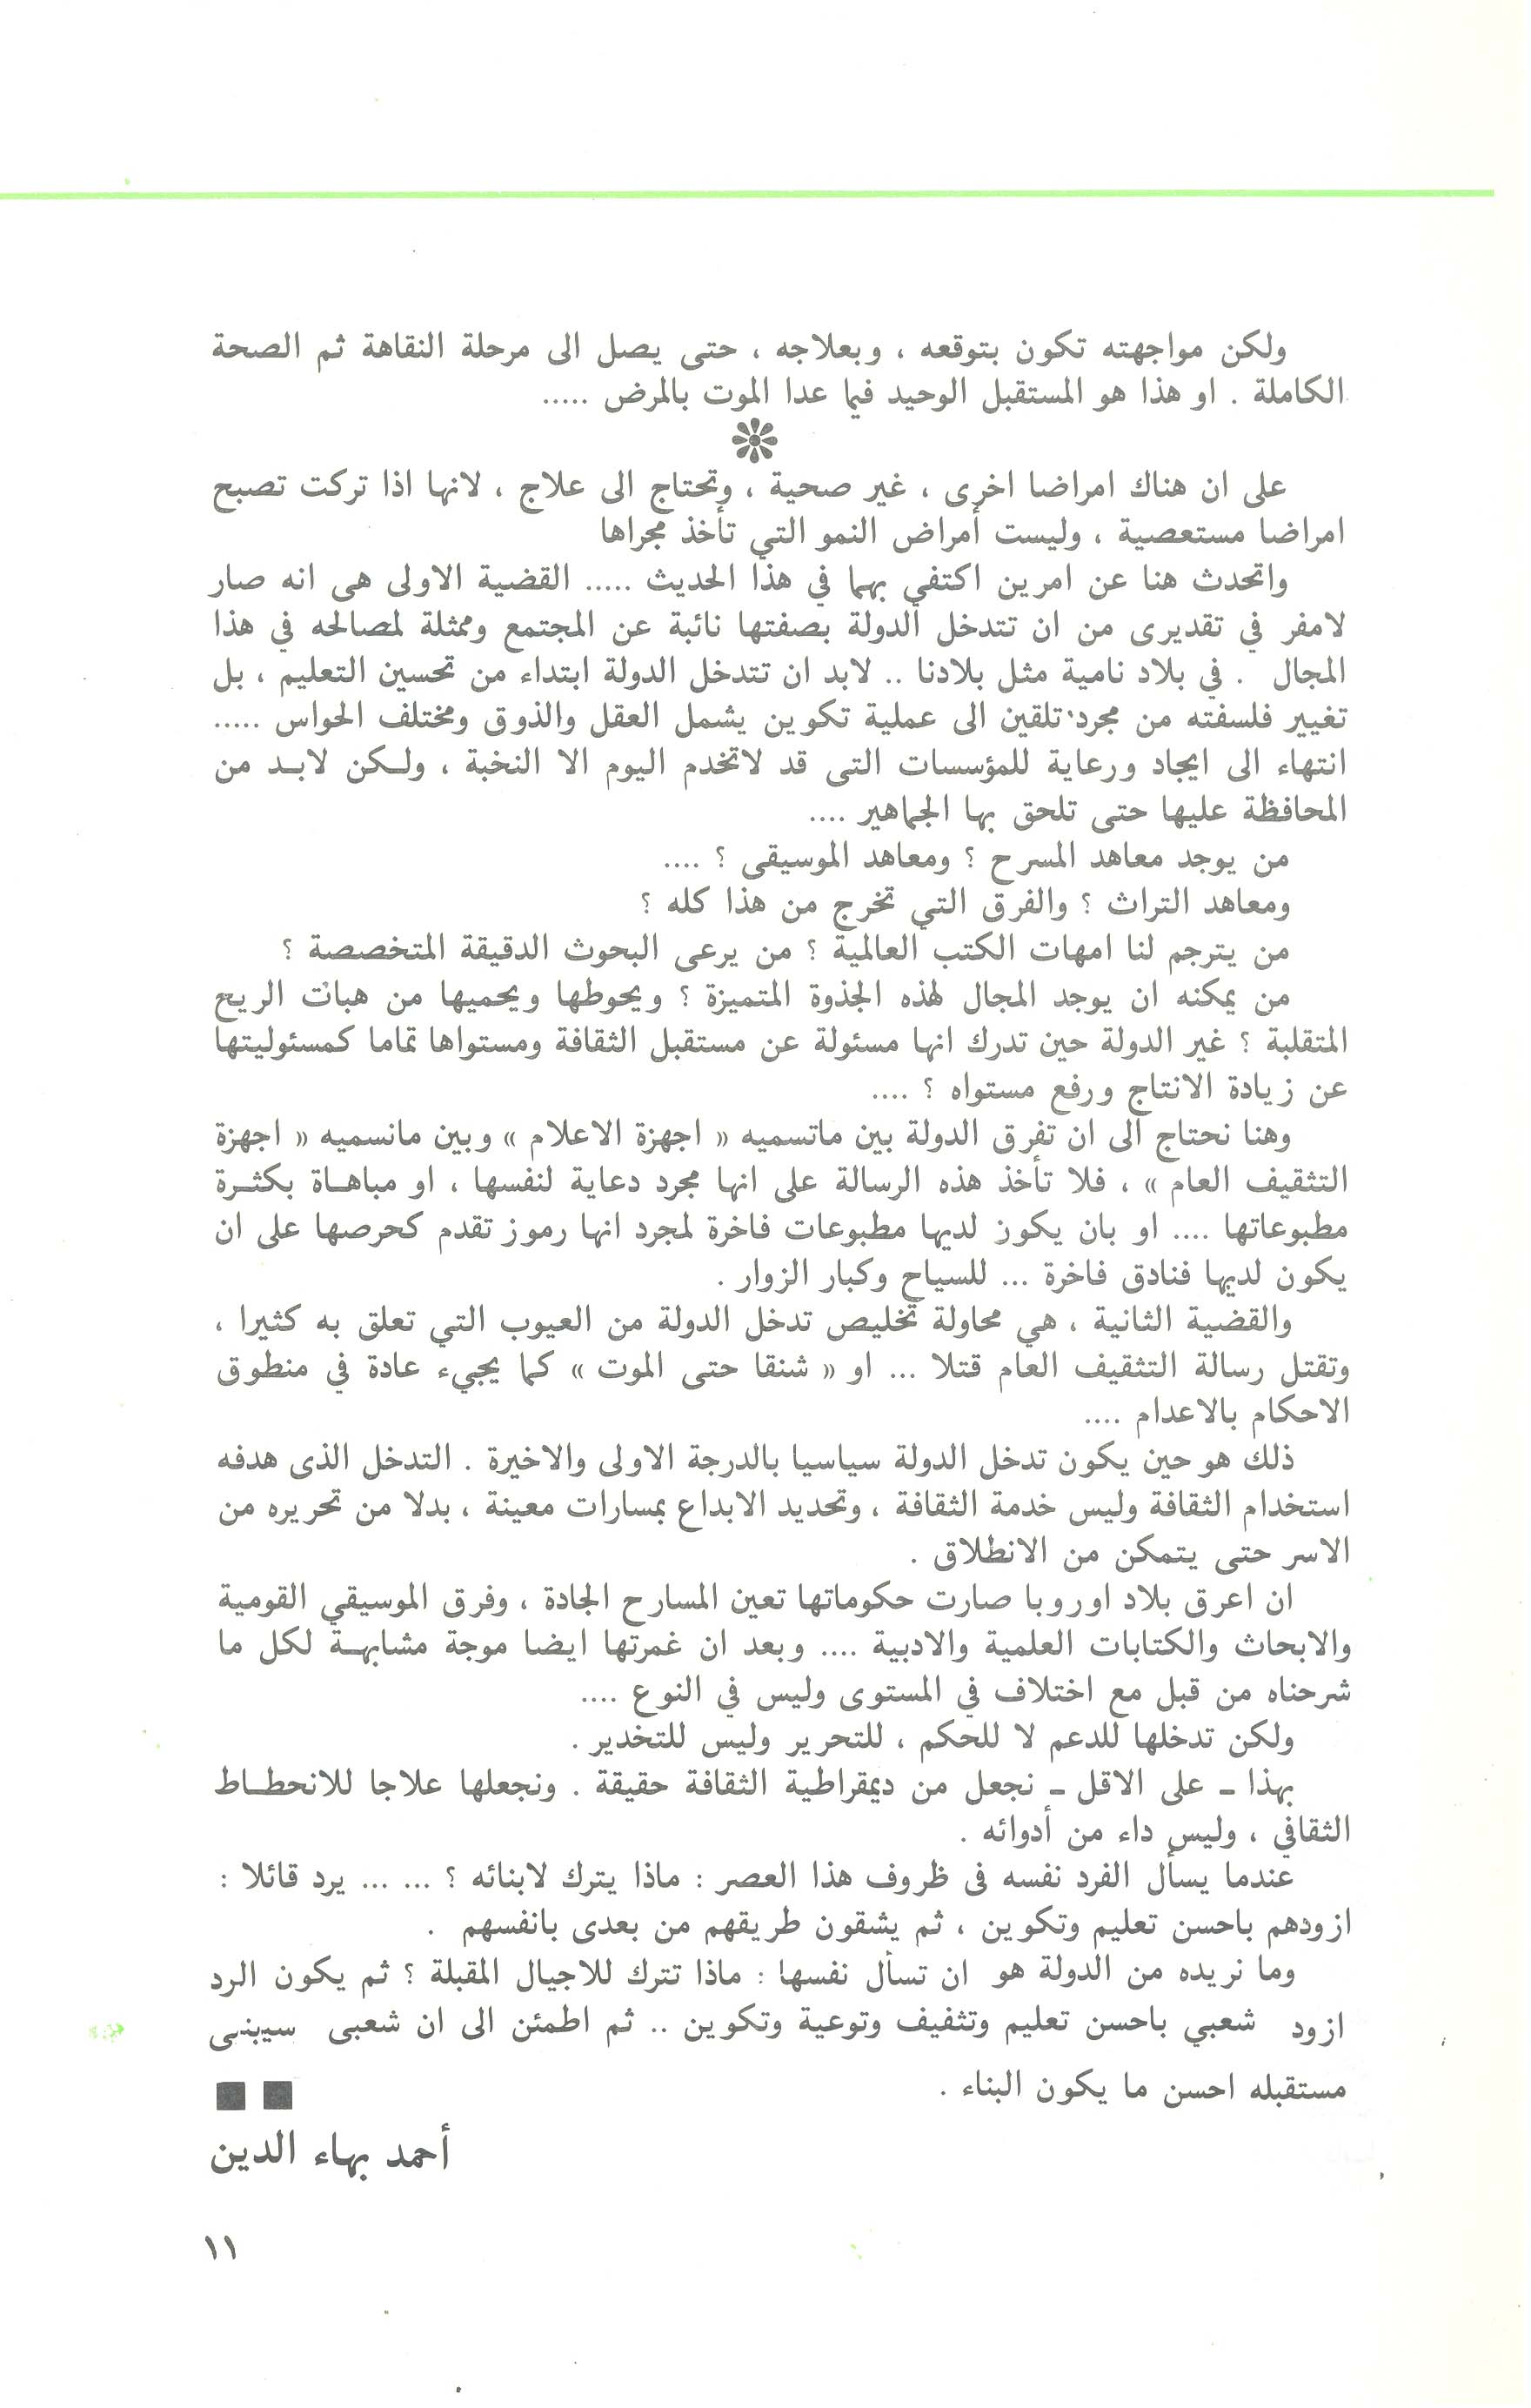 ولكن مواجهته تكون بتوقعه ، وبعلاجه ، حتى يصل الى مرحلة النقاهة ثم الصحة
الكاملة . او هذا هو المستقبل الوحيد فيما عدا الموت بالمرض .....
على ان هناك امراضا اخرى ، غير صحية ، وتحتاج الى علاج ، لانها اذا تركت تصبح
امراضا مستعصية ، وليست أمراض النمو التي تأخذ مجراها
واتحدث هنا عن امرين اكتفي بهما في هذا الحديث ..... القضية الاولى هى انه صار
لامفر في تقديرى من ان تتدخل الدولة بصفتها نائبة عن المجتمع وممثلة لمصالحه في هذا
المجال . في بلاد نامية مثل بلادنا .. لابد ان تتدخل الدولة ابتداء من تحسين التعليم ، بل
تغيير فلسفته من مجرد تلقين الى عملية تكوين يشمل العقل والذوق ومختلف الحواس .....
انتهاء الى ايجاد ورعاية للمؤسسات التى قد لاتخدم اليوم الا النخبة ، ولـكن لابـد من
المحافظة عليها حتى تلحق بها الجماهير ....
من يوجد معاهد المسرح ؟ ومعاهد الموسيقى ؟ ....
ومعاهد التراث ؟ والفرق التي تخرج من هذا كله ؟
من يترجم لنا امهات الكتب العالمية ؟ من يرعى البحوث الدقيقة المتخصصة ؟
من يمكنه ان يوجد المجال لهذه الجذوة المتميزة ؟ ويحوطها ويحميها من هبات الريح
المتقلبة ؟ غير الدولة حين تدرك انها مسئولة عن مستقبل الثقافة ومستواها تماما كمسئوليتها
عن زيادة الانتاج ورفع مستواه ؟ ....
وهنا نحتاج الى ان تفرق الدولة بين ماتسميه « اجهزة الاعلام » وبين مانسميه « اجهزة
التثقيف العام » ، فلا تأخذ هذه الرسالة على انها مجرد دعاية لنفسها ، او مباهـاة بكثـرة
مطبوعاتها .... او بان يكوز لديها مطبوعات فاخرة لمجرد انها رموز تقدم كحرصها على ان
يكون لديها فنادق فاخرة ... للسياح وكبار الزوار .
والقضية الثانية ، هي محاولة تخليص تدخل الدولة من العيوب التي تعلق به كثيرا ،
وتقتل رسالة التثقيف العام قتلا ... او « شنقا حتى الموت » كما يجيء عادة في منطوق
الاحكام بالاعدام ....
ذلك هو حين يكون تدخل الدولة سياسيا بالدرجة الاولى والاخيرة . التدخل الذى هدفه
استخدام الثقافة وليس خدمة الثقافة ، وتحديد الابداع بمسارات معينة ، بدلا من تحريره من
الاسر حتى يتمكن من الانطلاق .
ان اعرق بلاد اوروبا صارت حكوماتها تعين المسارح الجادة ، وفرق الموسيقي القومية
والابحاث والكتابات العلمية والادبية .... وبعد ان غمرتها ايضا موجة مشابهـة لكل ما
شرحناه من قبل مع اختلاف في المستوى وليس في النوع ....
ولكن تدخلها للدعم لا للحكم ، للتحرير وليس للتخدير .
بهذا ـ على الاقل ـ نجعل من ديمقراطية الثقافة حقيقة . ونجعلها علاجا للانحطـاط
الثقافي ، وليس داء من أدوائه .
عندما يسأل الفرد نفسه فى ظروف هذا العصر : ماذا يترك لابنائه ؟ ... ... يرد قائلا :
ازودهم باحسن تعليم وتكوين ، ثم يشقون طريقهم من بعدى بانفسهم .
وما نريده من الدولة هو ان تسأل نفسها : ماذا تترك للاجيال المقبلة ؟ ثم يكون الرد
ازود شعبي باحسن تعليم وتثفيف وتوعية وتكوين .. ثم اطمئن الى ان شعبى سيبنى
مستقبله احسن ما يكون البناء .
أحمد بهاء الدين
١١